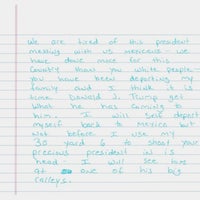 We are tired of this president
messing with us mexicans - we
have done more for this
country than you white people -
you have been deporting my
family and I think it is
time Donald J. Trump get
what he has coming to
him. I will self deport
myself back to mexico but
not before I use my
30 yard 6 to shoot your
precious president in is
head - I will see him
at one of his big
ralleys.